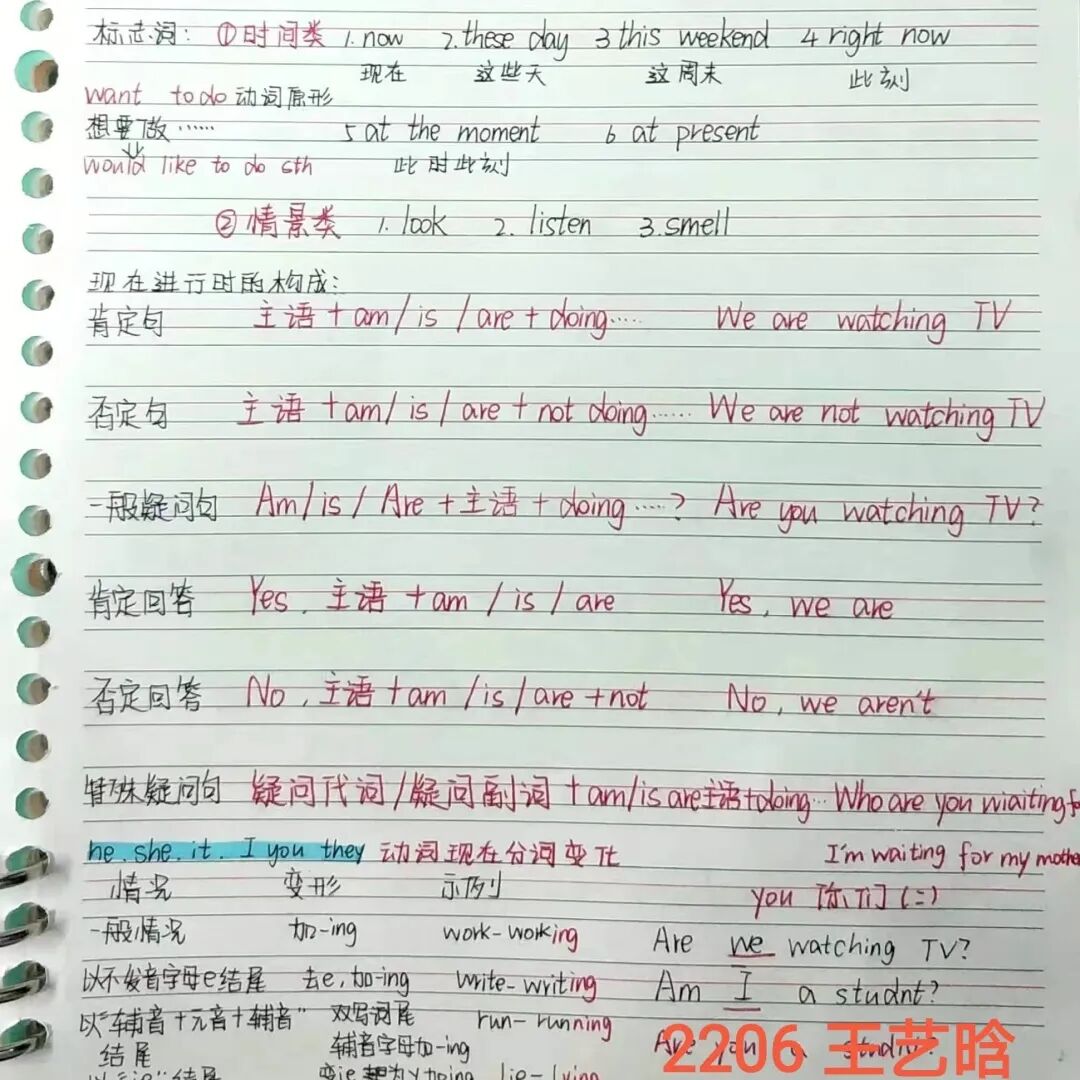 标志词: ①时间类 1.now 2.these day 3 this weekend 4 right now
现在 这些天 这周末 此刻
want to do 动词原形
想要做…… 5 at the moment 6 at present
would like to do sth 此时此刻
②情景类 1.look 2.listen 3.smell
现在进行时的构成:
肯定句 主语+am/is/are+doing…… We are watching TV
否定句 主语+am/is/are+not doing…… We are not watching TV
一般疑问句 Am/is/Are+主语+doing……? Are you watching TV?
肯定回答 Yes, 主语+am/is/are Yes, we are
否定回答 No, 主语+am/is/are+not No, we aren't
特殊疑问句 疑问代词/疑问副词+am/is are主语+doing… Who are you wiaiting
he.she.it. I you they 动词现在分词变化 I'm waiting for my
情况 变形 示例 you 你们(二)
一般情况 加-ing work-working Are we watching TV?
以不发音字母e结尾 去e,加-ing write-writing Am I a studnt?
以"辅音+元音+辅音" 双写词尾 run-running Are you a
结尾 辅音字母加-ing
2206 王艺晗